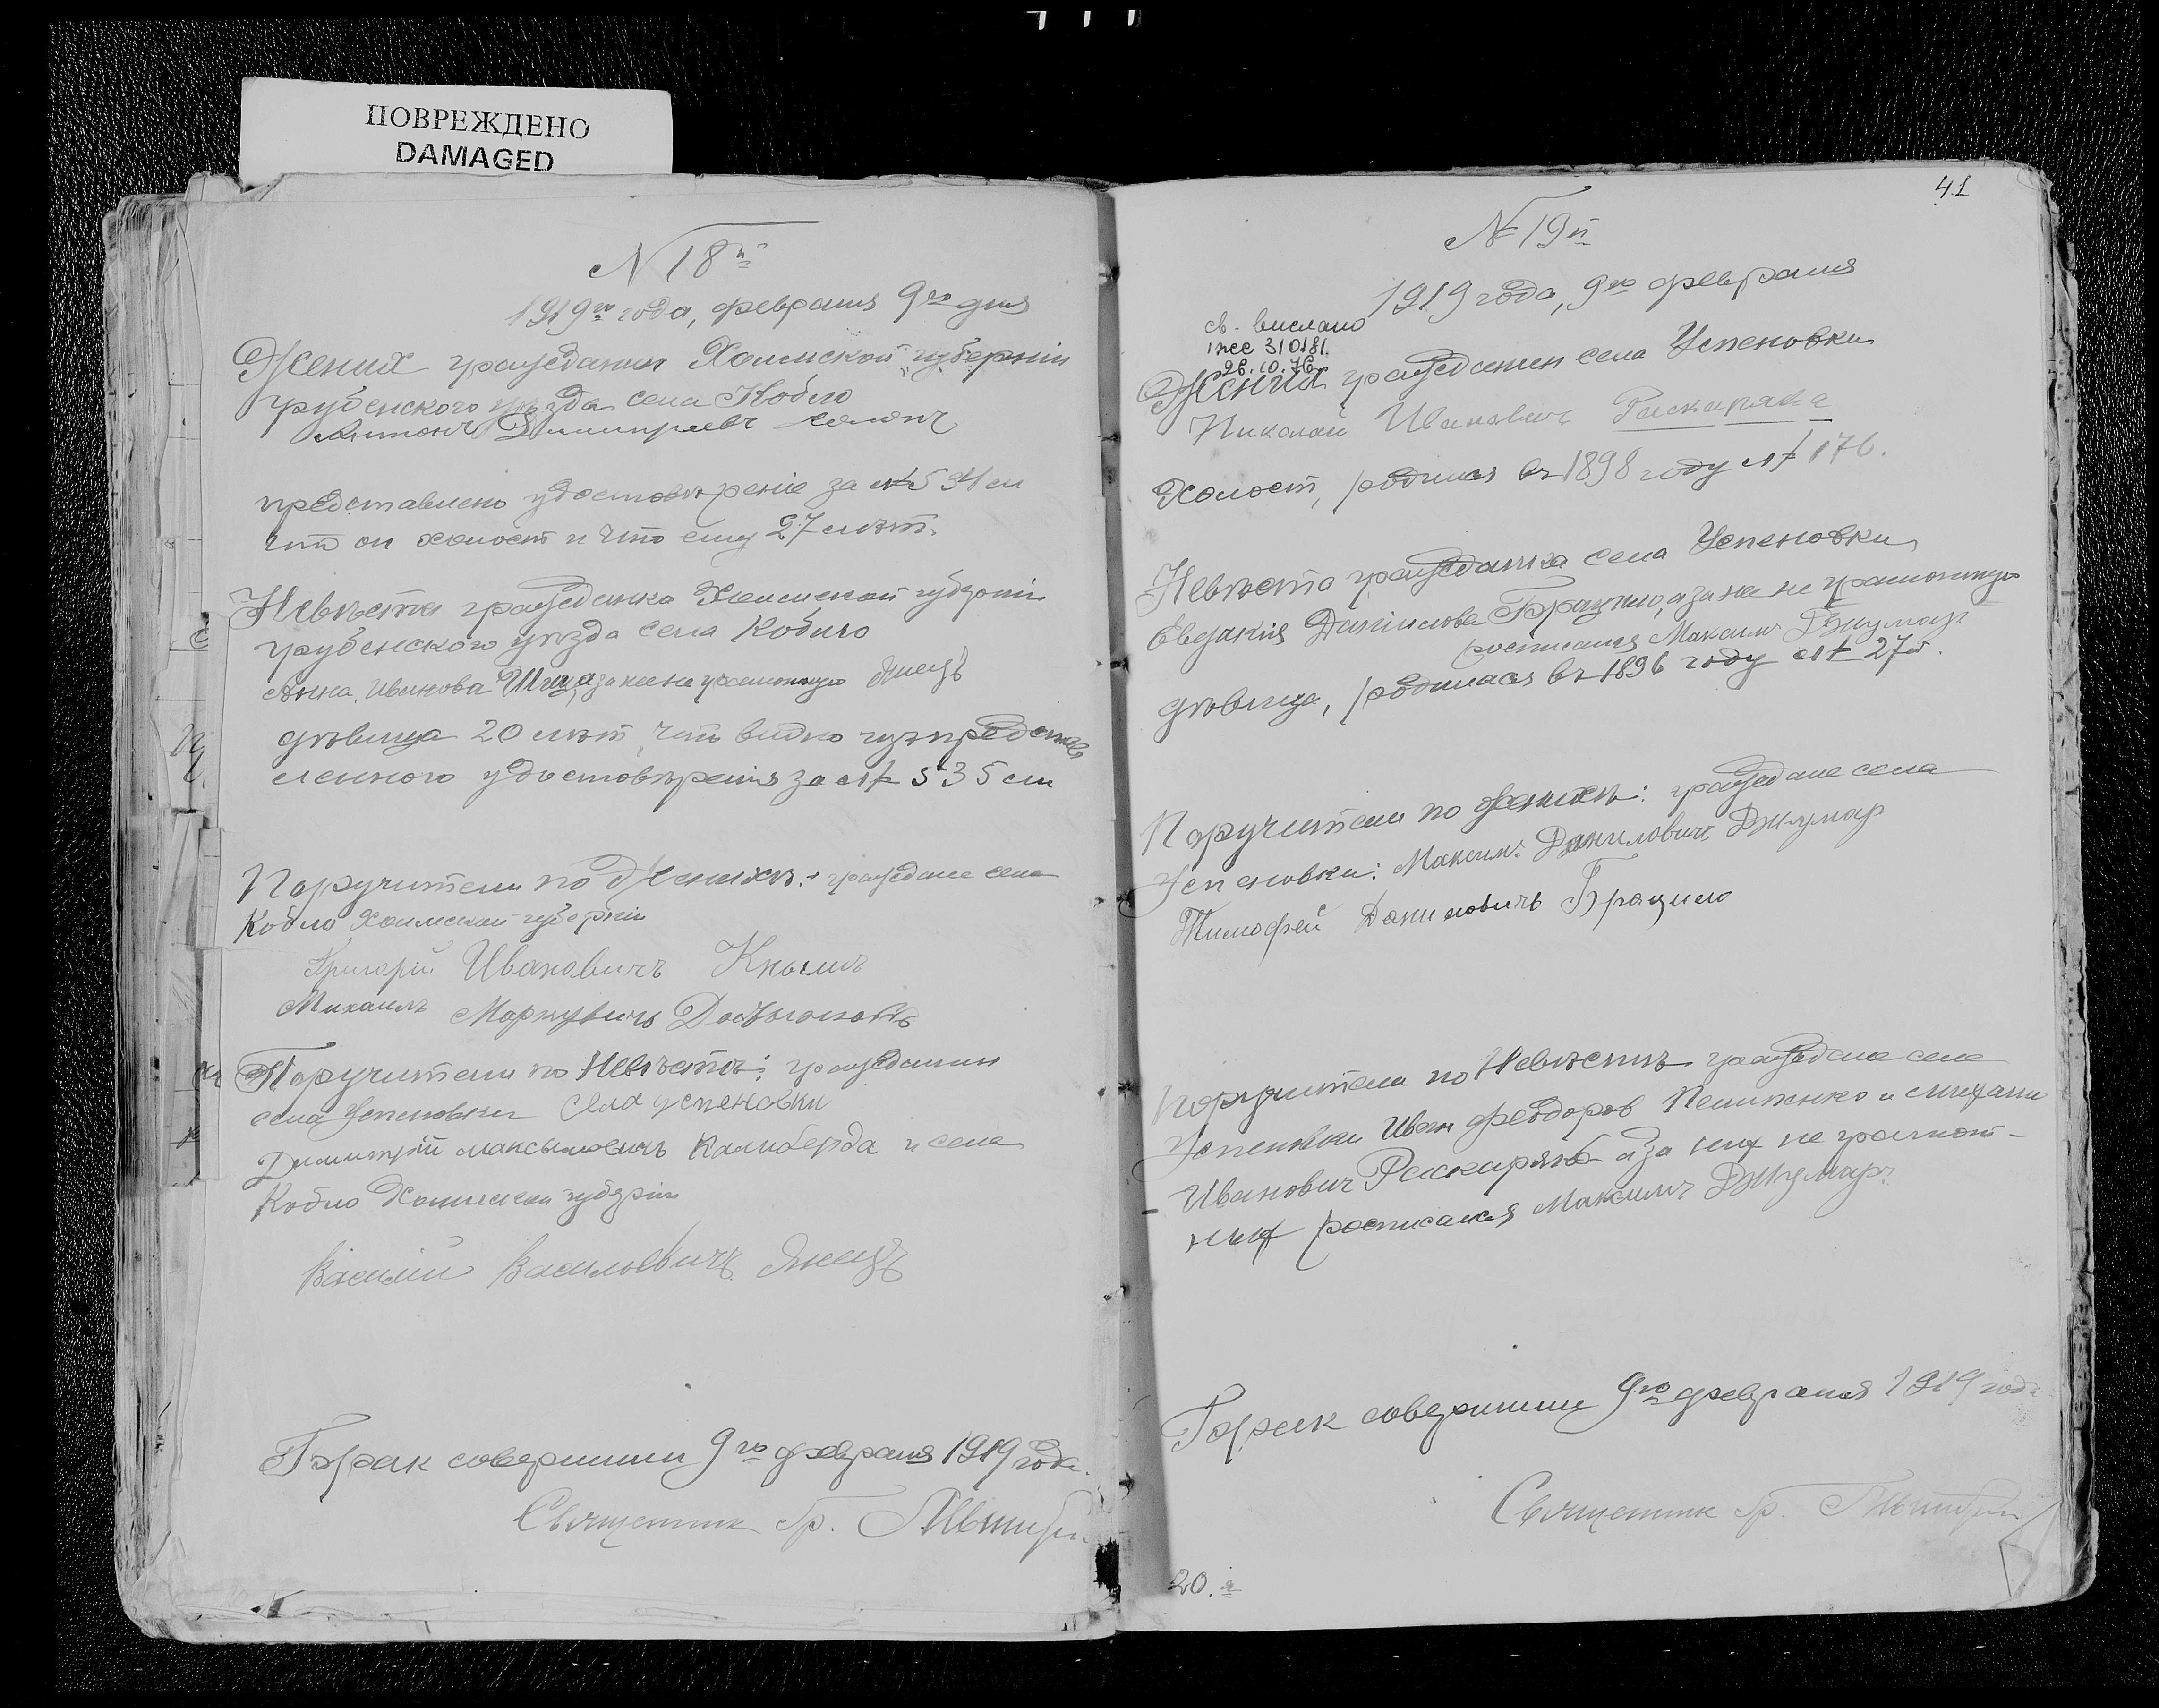 ПОВРЕЖДЕНО
DAMAGED
N 18й
1919го года, февраля 9го дня
Жених гражданин Холмской губернии
грубенского уѣзда села Кобло
Антонъ Димитриевъ
представлено удостовѣреніе за № 534 см
что он холост и что ему 27 лѣт.
Невѣста гражданка Холмской губерніи
грубенского уѣзда села Кобло
Анна Иванова за нее неграмотную Янецъ
дѣвица 20 лѣт, что видно изъ представ
леннаго удостовѣренія за № 535 см
Поручители по Женихѣ: граждане села
Кобло Холмской губерніи
Григорій Ивановичъ
Михаилъ Маркувичъ
Поручители по Невѣстѣ: гражданин
села Успеновки села успеновки
Димитрій максымовичъ Калиберда и села
Кобло Холмской губерніи
Василій Василовичъ Янецъ
Брак совершили 9го февраля 1919 года.
Священник Гр.
41
N 19й
1919 года, 9го февраля
св. выслано
інее 310181.
26.10.76
Жених гражданин села Успеновки
Николай Ивановичъ Раскаряка
Холост, родился въ 1898 году № 176.
Невѣста гражданка села Успеновки
Евдакия Данилова Брацило, а за нее неграмотную
росписался Максимъ Джумар
дѣвица, родилася въ 1896 году № 27й.
Поручители по женихѣ: граждане села
Успеновки: Максимъ Данилович Джумар
Тимофей Даниловичъ Брацило
Поручители по Невѣстѣ граждане села
Успеновки Иван Феодоров и
Иванович Раскаряка а за них не грамот-
ных росписался Максимъ Джумаръ
Брак совершили 9го февраля 1919 года
Священник Гр.
20.я